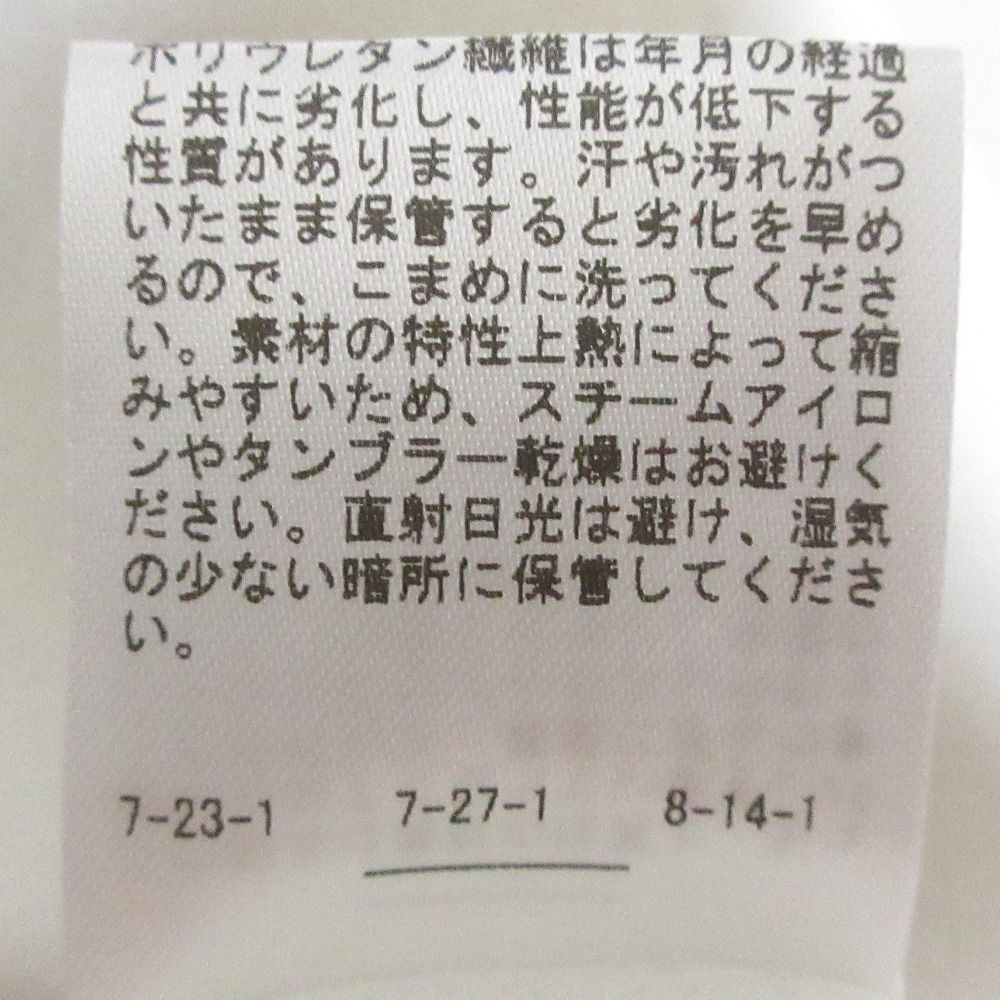 ポリウレタン繊維は年月の経過
と共に劣化し、性能が低下する
性質があります。汗や汚れがつ
いたまま保管すると劣化を早め
るので、こまめに洗ってくださ
い。素材の特性上熱によって縮
みやすいため、スチームアイロ
ンやタンブラー乾燥はお避けく
ださい。直射日光は避け、湿気
の少ない暗所に保管してくださ
い。
7-23-1 7-27-1 8-14-1